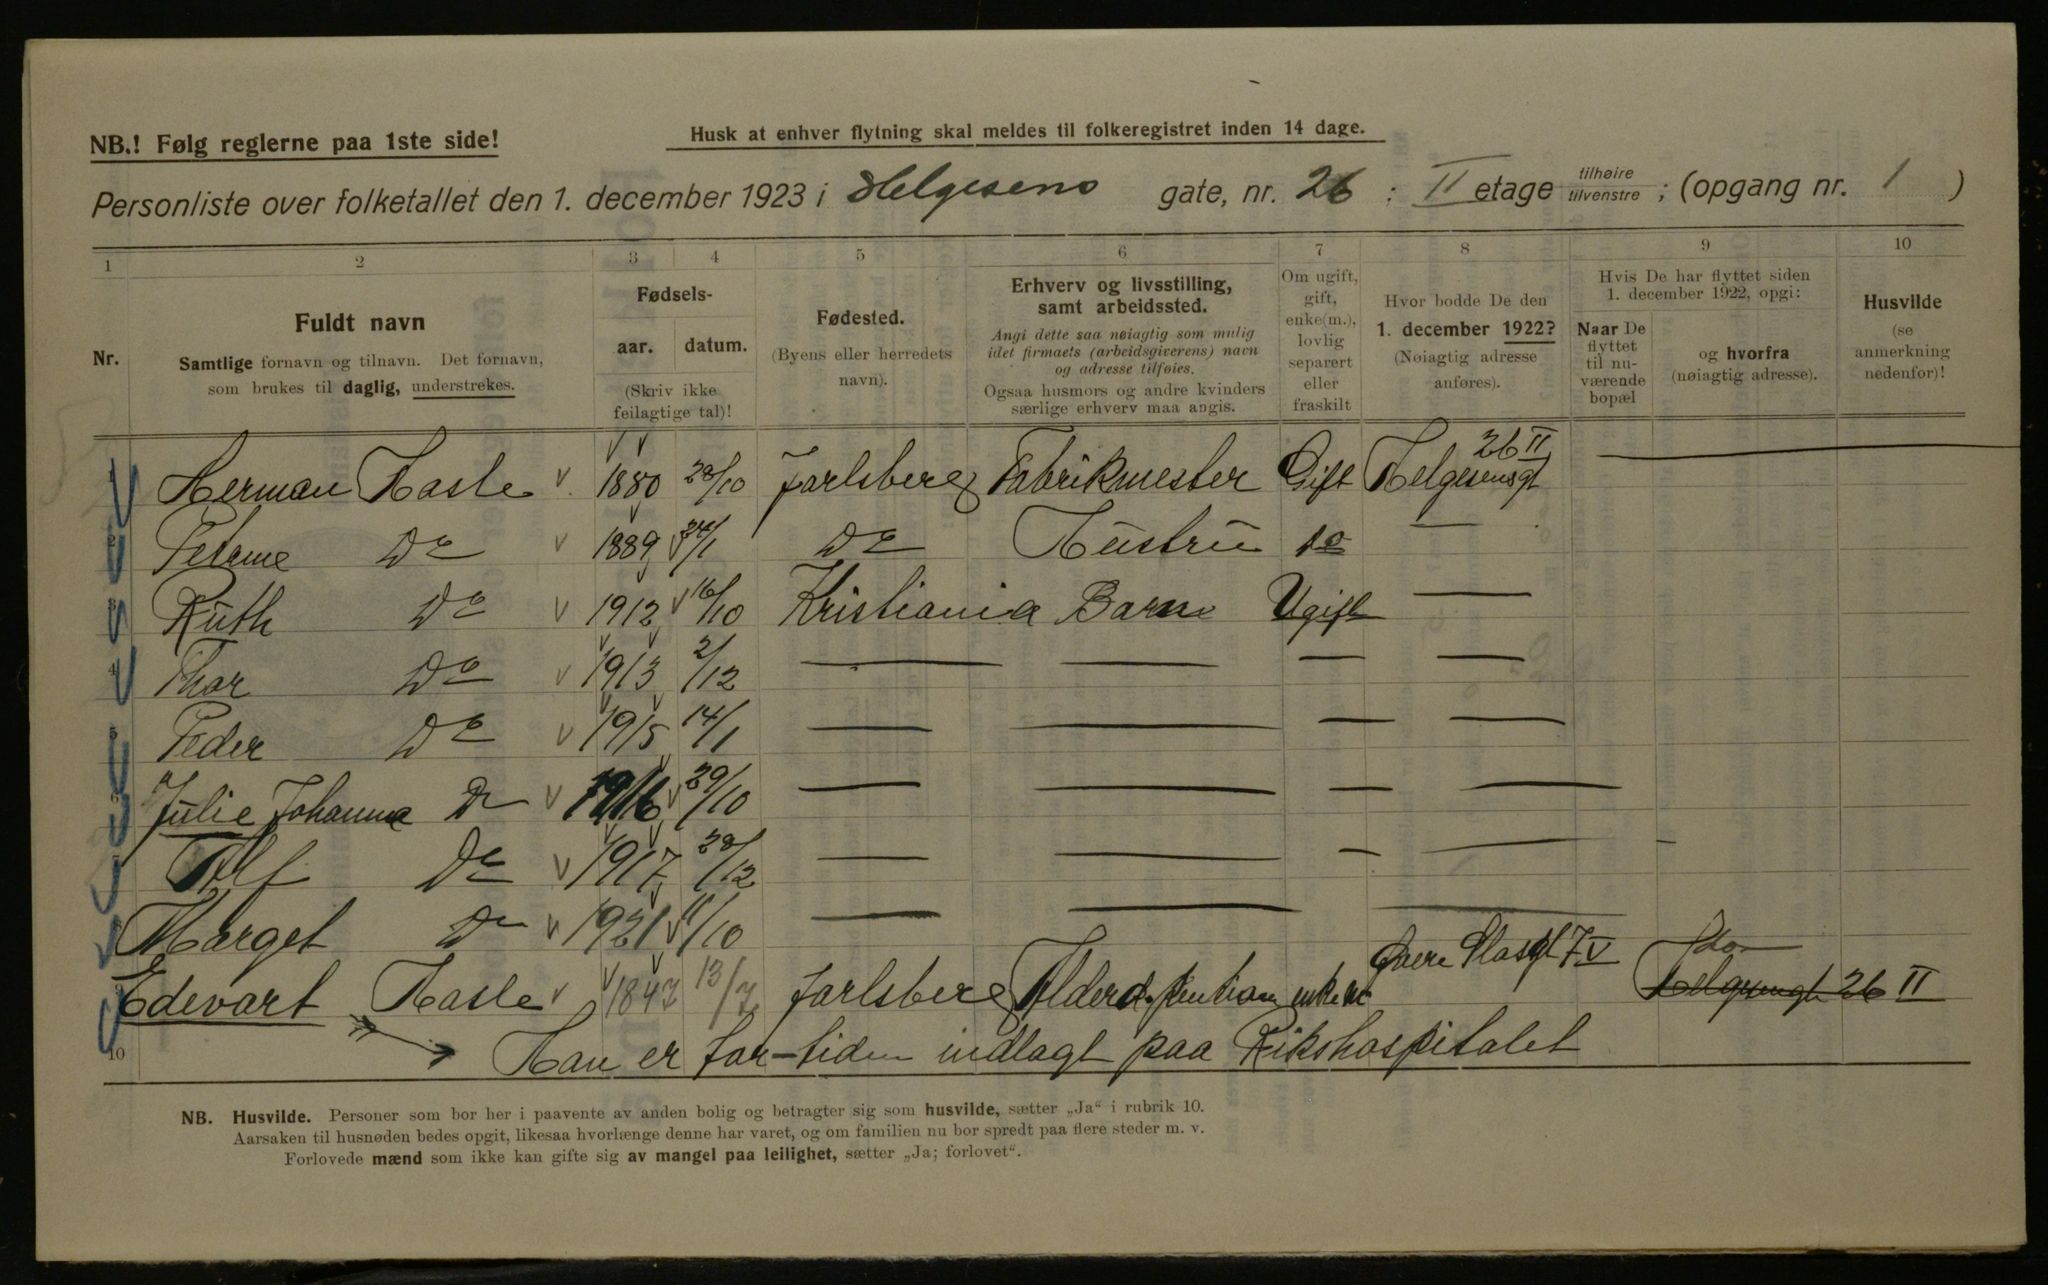 NB.! Følg reglerne paa 1ste side!
Husk at enhver flytning skal meldes til folkeregistret inden 14 dage.
Personliste over folketallet den 1. december 1923 i Helgesens gate, nr. 26 ; II etage tilhøire tilvenstre ; (opgang nr. 1 )
1 2 3 4 5 6 7 8 9 10
Nr.
Fuldt navn
Samtlige fornavn og tilnavn. Det fornavn,
som brukes til daglig, understrekes.
Fødsels-
aar. datum.
(Skriv ikke
feilagtige tal)!
Fødested.
(Byens eller herredets
navn).
Erhverv og livsstilling,
samt arbeidssted.
Angi dette saa nøiagtig som mulig
idet firmaets (arbeidsgiverens) navn
og adresse tilføies.
Ogsaa husmors og andre kvinders
særlige erhverv maa angis.
Om ugift,
gift,
enke(m.),
lovlig
separert
eller
fraskilt
Hvor bodde De den
1. december 1922?
(Nøiagtig adresse
anføres).
Hvis De har flyttet siden
1. december 1922, opgi:
Naar De
flyttet
til nu-
værende
bopæl
og hvorfra
(nøiagtig adresse).
Husvilde
(se
anmerkning
nedenfor)!
1 Herman Hasle 1880 28/10 Jarlsberg Fabrikmester Gift Helgesensgt 26 II
2 Do 1889 24/1 Do Hustru do —
3 Ruth Do 1912 16/10 Kristiania Barn Ugift —
4 Thor Do 1913 2/12 — — — —
5 Peder Do 1915 14/1 — — — —
Julie Johanna Do 1916 29/10 — — — —
Alf Do 1917 28/12 — — — —
Marget Do 1921 11/10 — — —
Edevart Hasle 1847 13/7 Jarlsberg Alderd. enkem 26 II
10 Han er for-tiden indlagt paa Rikshospitalet
NB. Husvilde. Personer som bor her i paavente av anden bolig og betragter sig som husvilde, sætter „Ja“ i rubrik 10.
Aarsaken til husnøden bedes opgit, likesaa hvorlænge denne har varet, og om familien nu bor spredt paa flere steder m. v.
Forlovede mænd som ikke kan gifte sig av mangel paa leilighet, sætter „Ja; forlovet“.